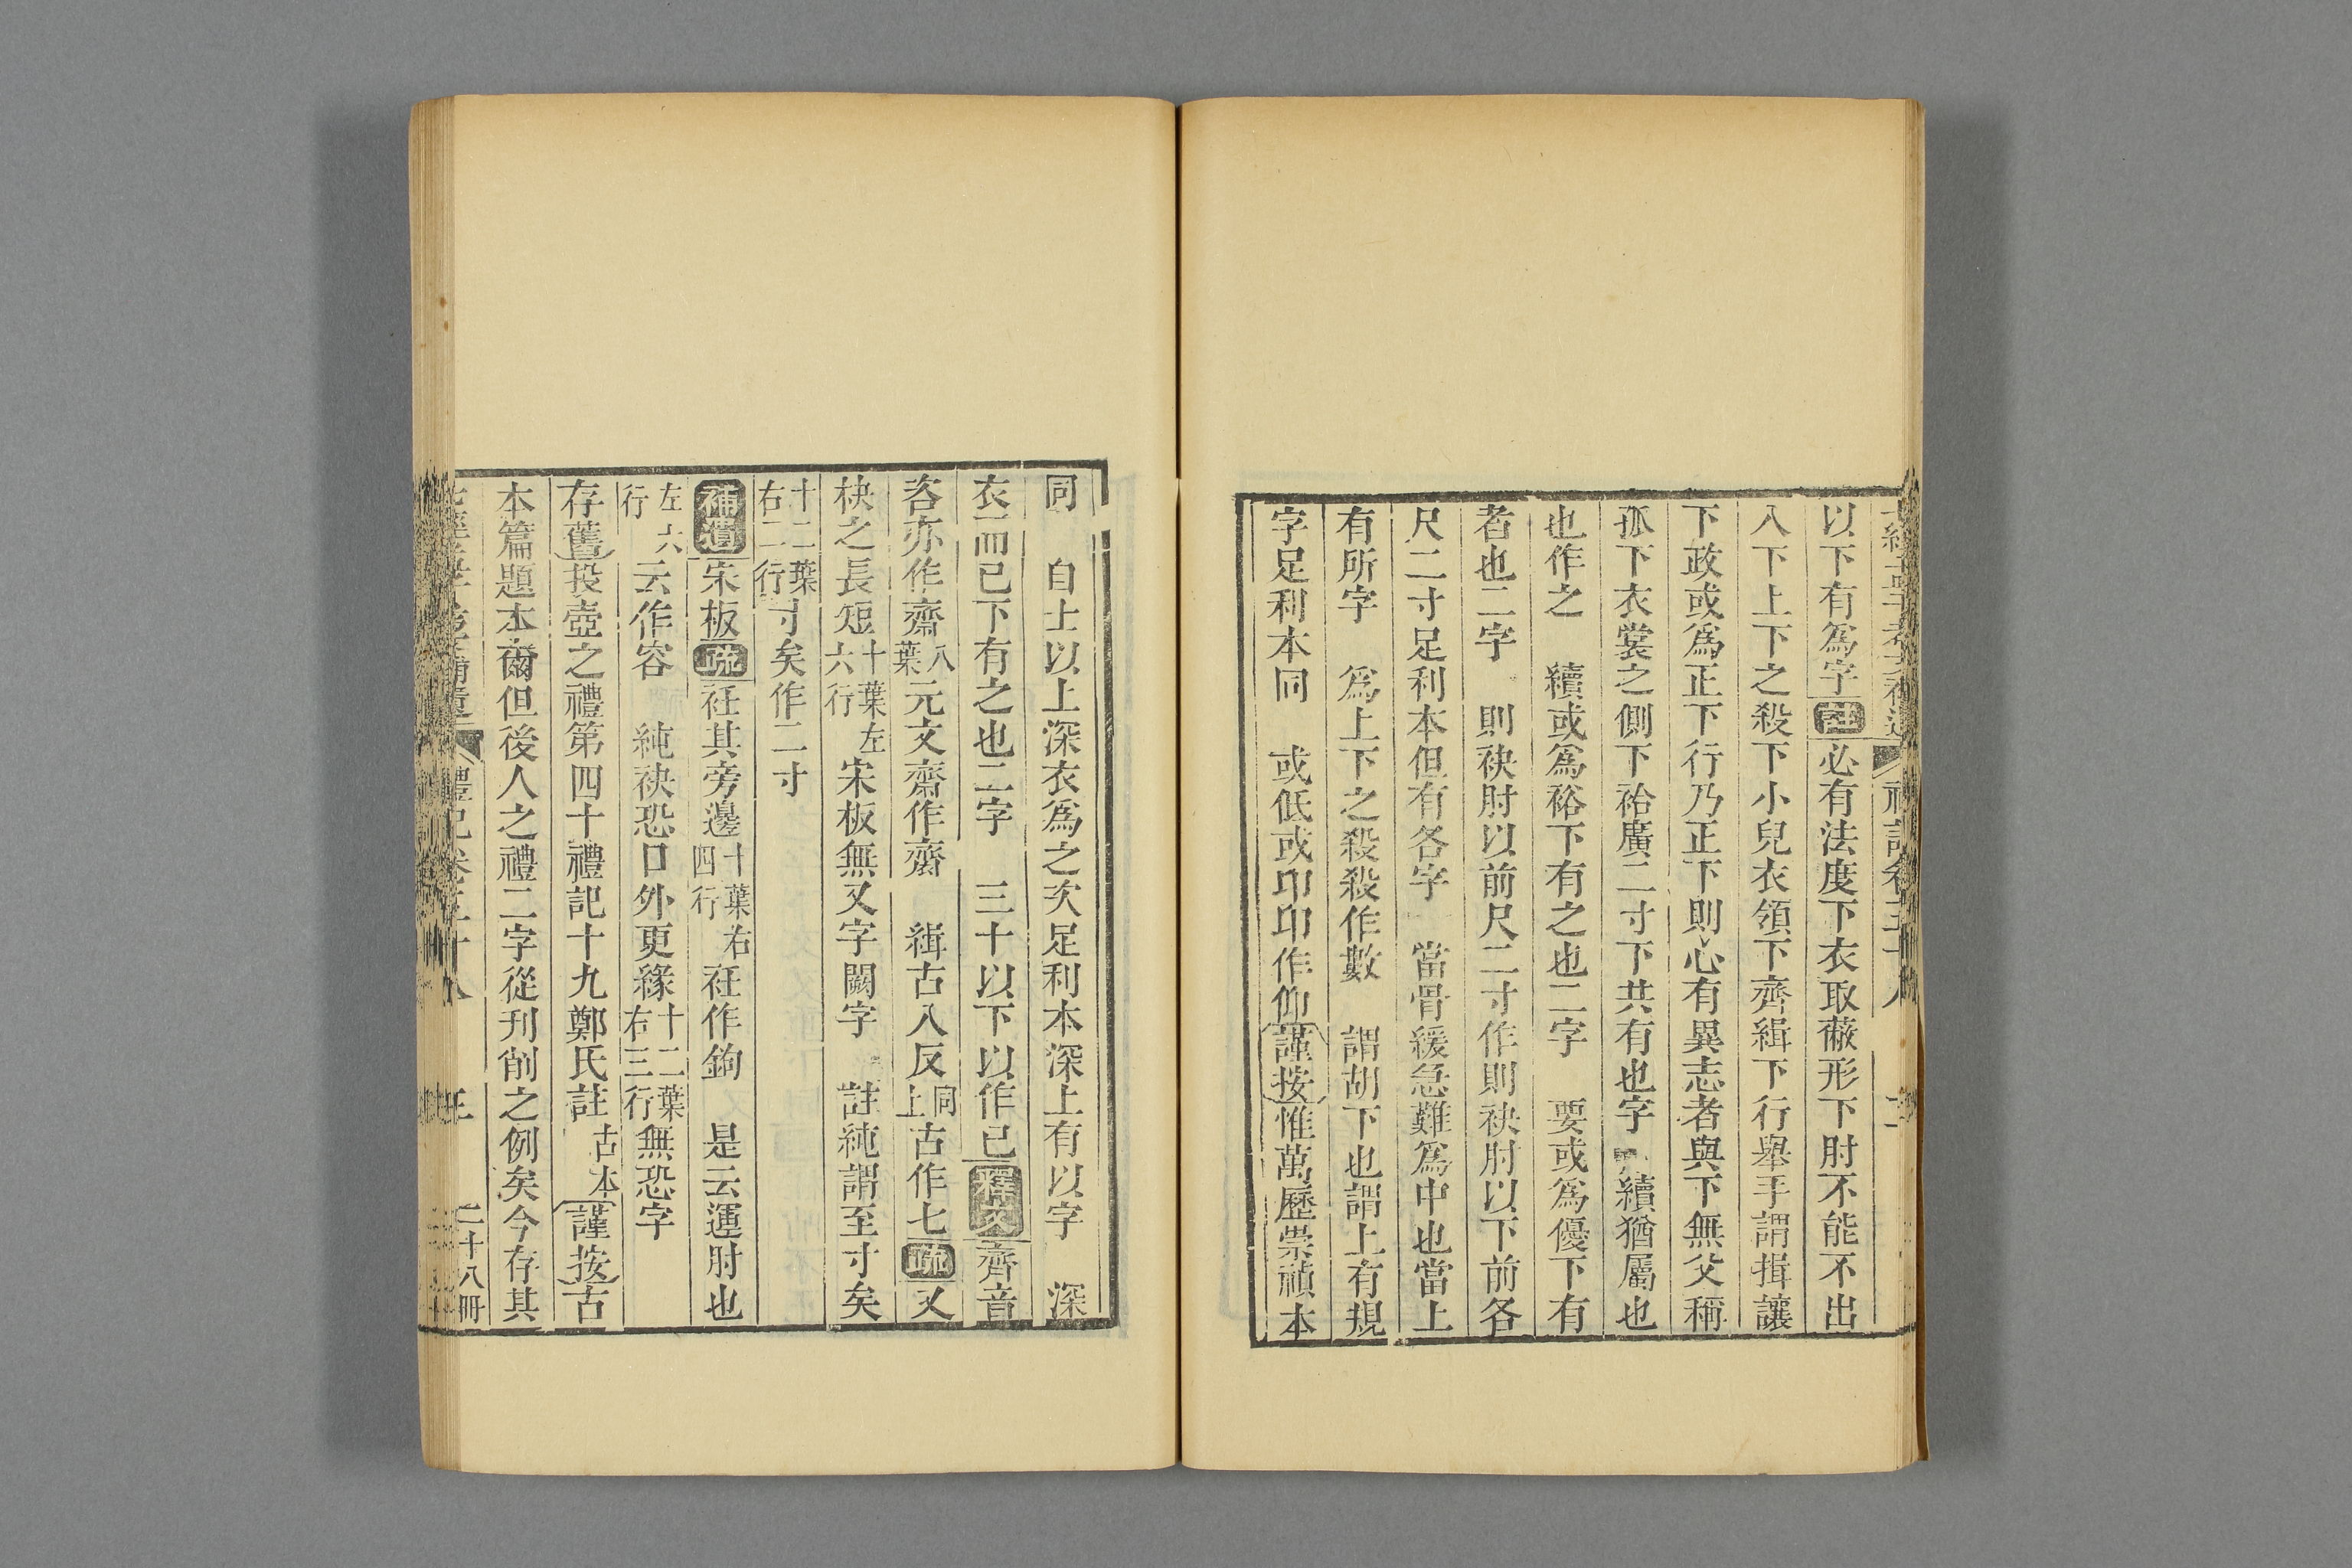 以下有為字註必有法度下衣取蔽形下肘不能不出
入下上下之殺下小兒衣領下齊緝下行舉手謂揖讓
下政或為正下行乃正下則心有異志者與下無父稱
孤下衣裳之側下袷廣二寸下共有也字 續猶屬也
也作之 續或為裕下有之也二字 要或為優下有
者也二字 則袂肘以前尺二寸作則袂肘以下前各
尺二寸足利本但有各字 當骨緩急難為中也當上
有所字 為上下之殺殺作數 謂胡下也謂上有規
字足利本同 或低或卬卬作仰謹按惟萬歷崇禎本
同 自士以上深衣為之次足利本深上有以字 深
衣而已下有之也二字 三十以下以作已釋文齊音
咨亦作齋八葉元文齋作齎 緝古入反同上古作七疏又
袂之長短十葉左六行宋板無又字闕字 註純謂至寸矣
十二葉右二行寸矣作二寸
補遺宋板疏衽其旁邊十葉右四行衽作鉤 是云運肘也
左六行云作容 純袂恐口外更緣十二葉右三行無恐字
存舊投壺之禮第四十禮記十九鄭氏註古本謹按古
本篇題本爾但後人之禮二字從刊削之例矣今存其
二十八冊